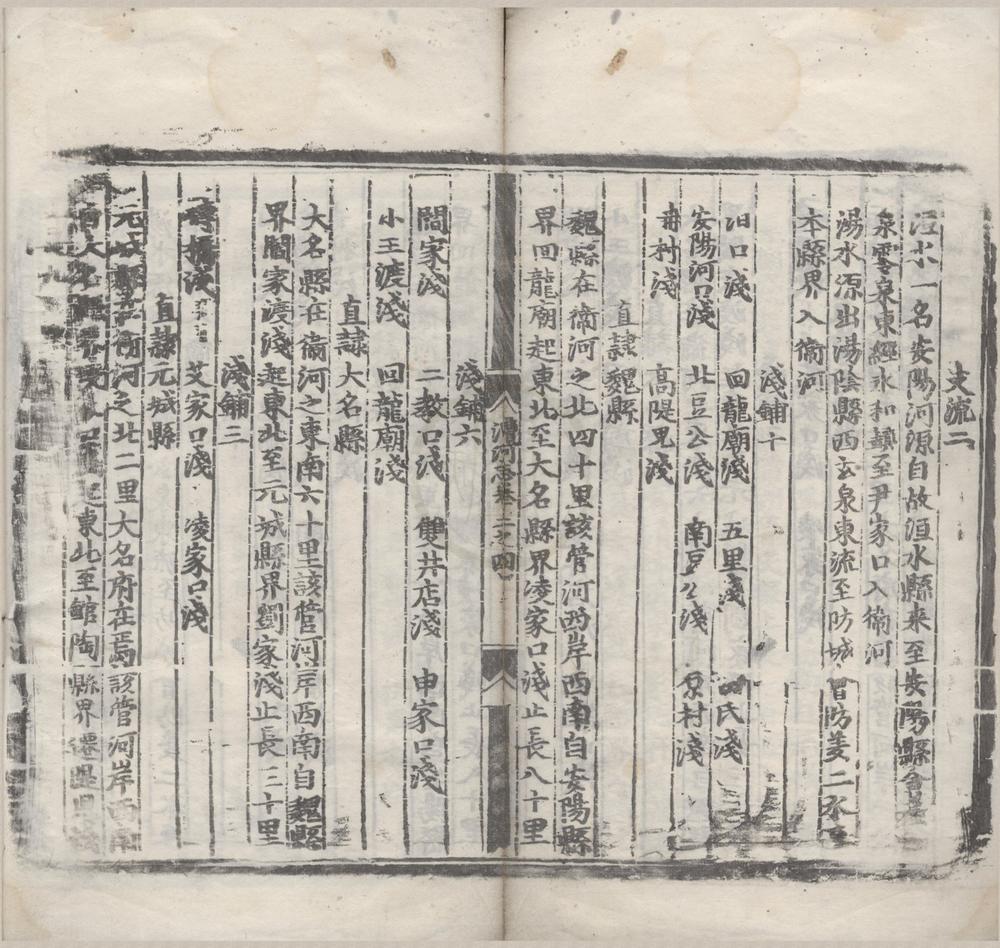 支流二
洹水一名安陽河源自故洹水縣來至安陽縣
泉零泉東經永和鎮至尹家口入衛河
湯水源出湯陰縣西玄泉東流至防城會防姜二水
本縣界入衛河
淺鋪十
泊口淺 回龍廟淺 五里淺 氏淺
安陽河口淺 北豆公淺 南豆公淺 京村淺
村淺 高隄兒淺
直隸魏縣
魏縣在衛河之北四十里該管河西岸西南自安陽縣
界回龍廟起東北至大名縣界凌家口淺止長八十里
漕河志卷二之四
淺鋪六
閻家淺 二教口淺 雙井店淺 申家口淺
小王渡淺 回龍廟淺
直隸大名縣
大名縣在衛河之東南六十里該管河岸西南自魏縣
界閻家渡淺起東北至元城縣界劉家淺止長三十里
淺鋪三
淺 艾家口淺 凌家口淺
直隸元城縣
元城縣在衛河之北二里大名府在焉該管河岸西南
自大名縣界 口 起東北至館陶縣界遷隄